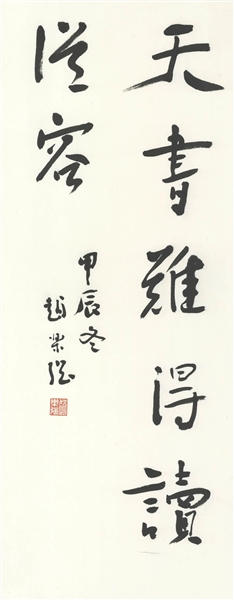 天書難得讀
從容
甲辰冬
趙梁